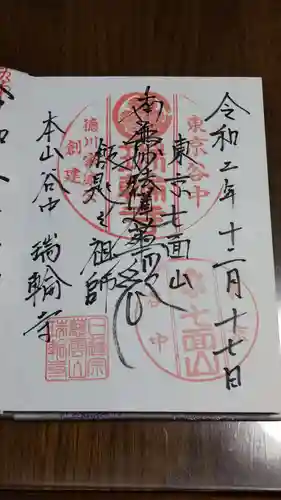 令和二年十二月十七日
東京七面山
南無妙法蓮華経
飯匙之祖師
本山谷中 瑞輪寺
東京谷中
徳川家康
創建
七面山
谷中
日蓮宗
慈雲山
瑞輪寺